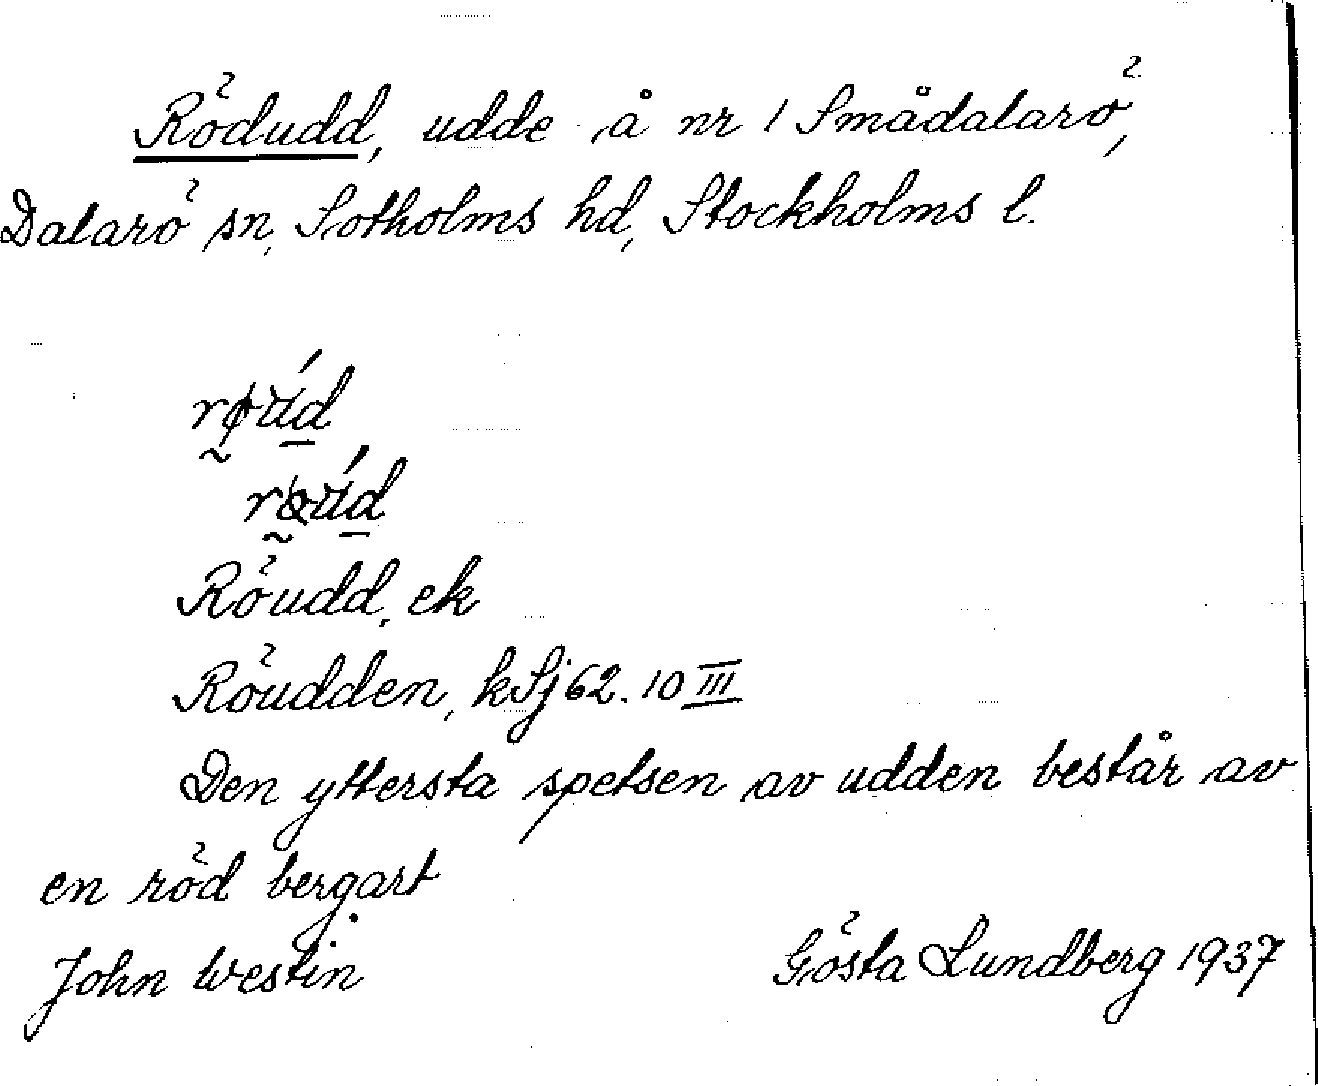 Rödudd, udde å nr 1 Smådalarö,
Dalarö sn, Sotholms hd, Stockholms l.
Röudd, ek
Röudden, kSj 62. 10 III
Den yttersta spetsen av udden består av
en röd bergart
John Westin Gösta Lundberg 1937